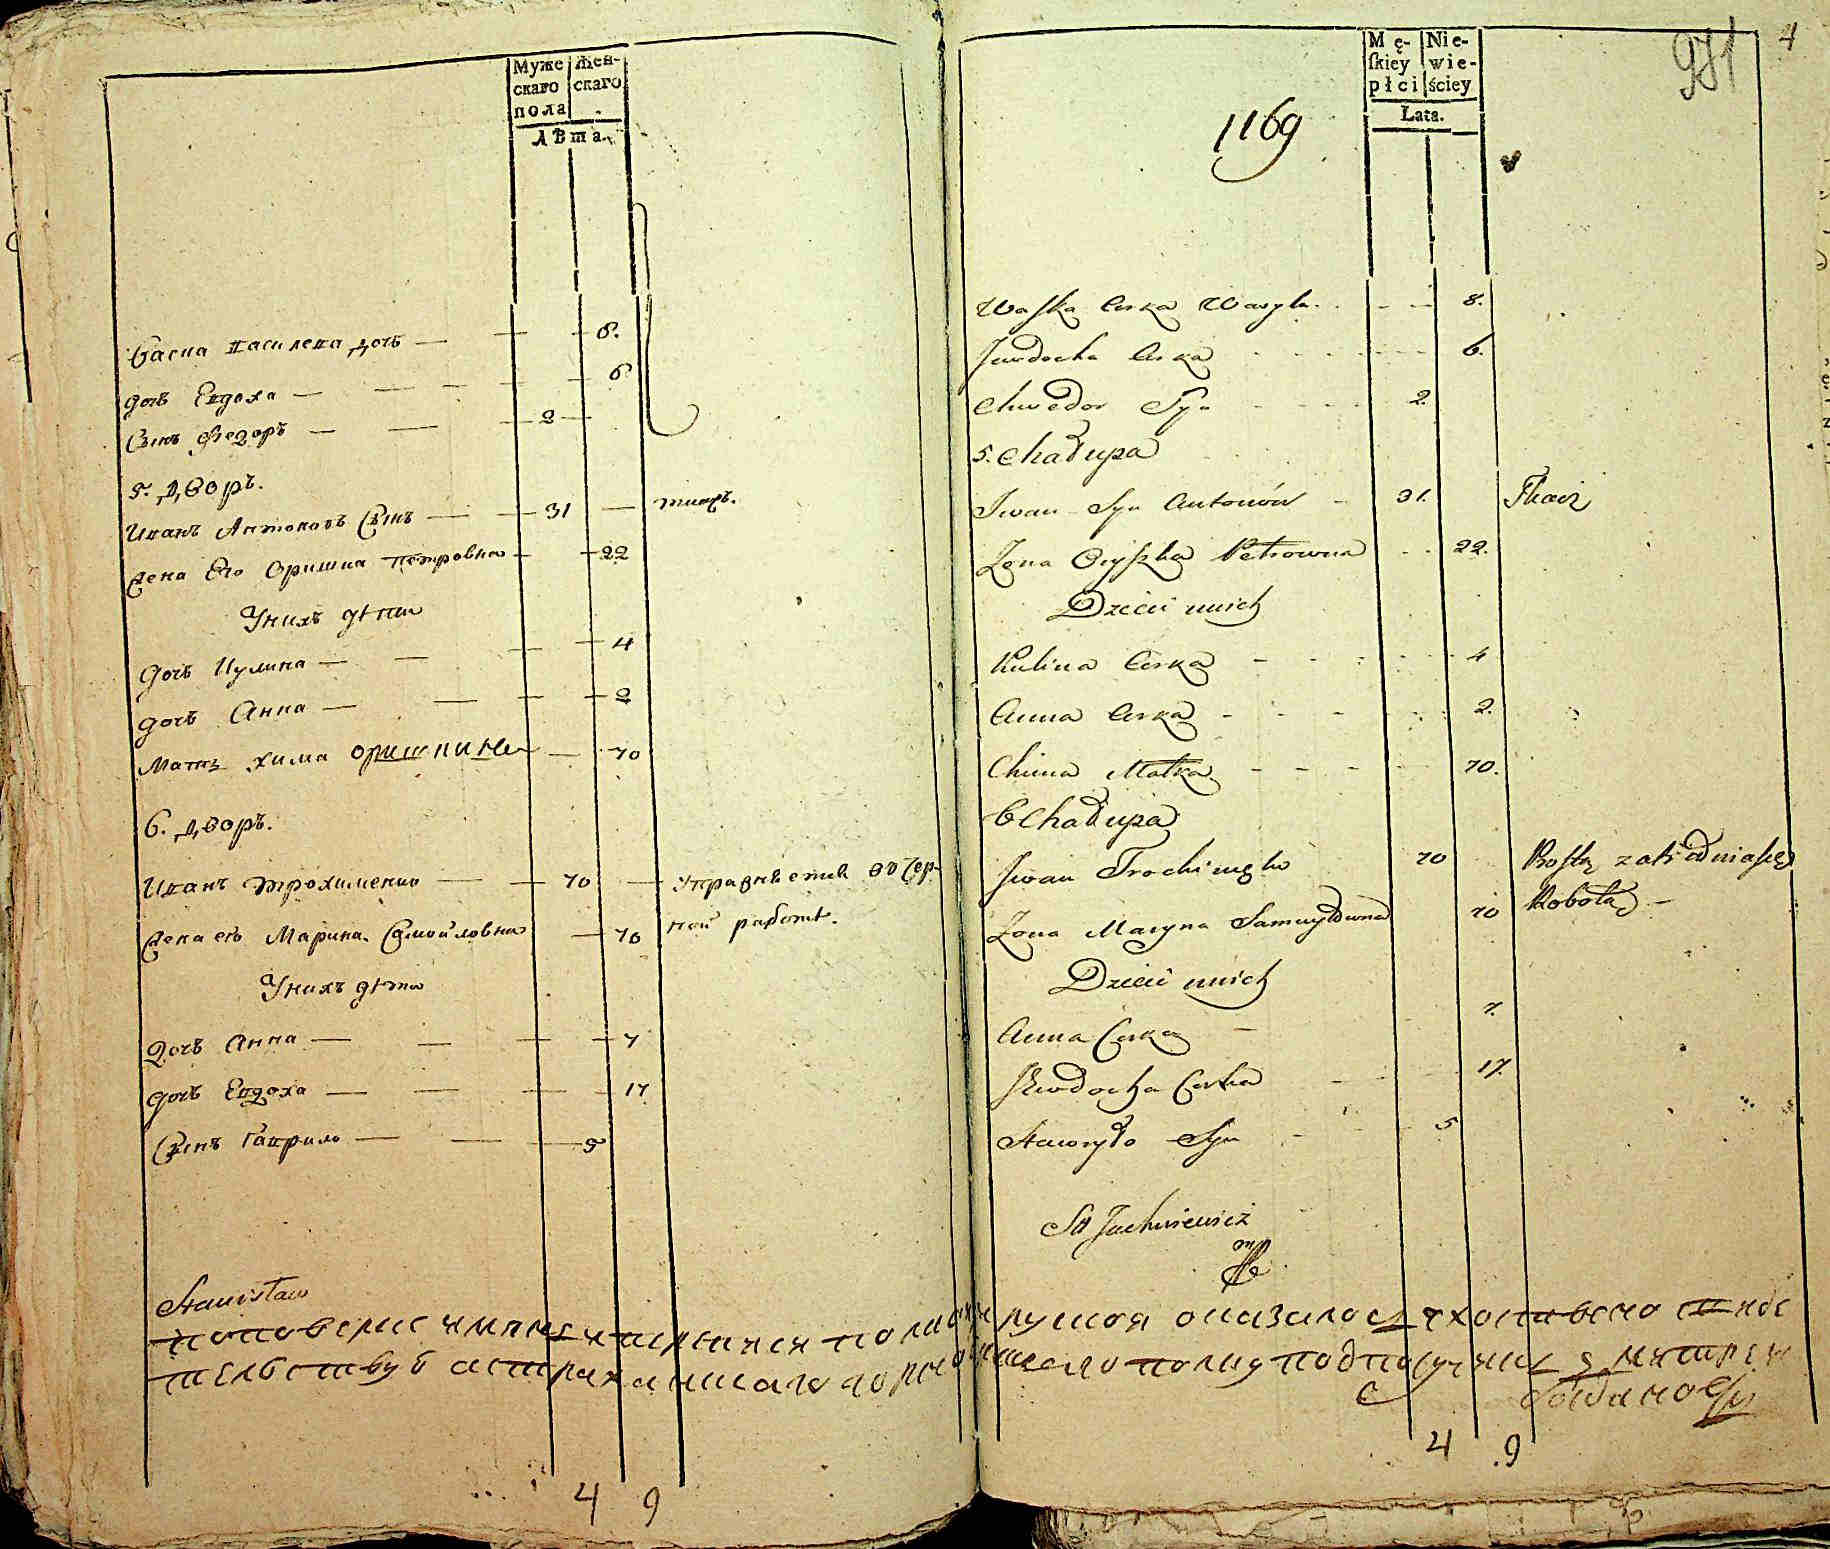 Муже
скаго
пола
Жен-
скаго
Лѣта.
Васка Василева дочь — — 8.
дочь Евдоха — — — 6
Сынъ Федоръ — — 2 —
5. дворъ.
Иванъ Антоновъ Сынъ — — 31 — ткачъ.
Жена Его Оришка Петровна — 22
У нихъ дѣти
дочь Кулина — — — 4
дочь Анна — — — 2
Мать Хима — 70
6. дворъ.
Иванъ Трохименко — — 70 — Упражнѣется въ Чер-
ной работѣ.
Жена его Марина Самойловна — 70
У нихъ дѣти
дочь Анна — — — 7
дочь Евдоха — — — 17
Сынъ Гаврило — — 5
Stanisław
4 9
Mę-
ſkiey
płci
Nie-
wie-
ściey
Lata.
971
4
1169
Waſka Corka Wasyla. - - - 8.
Jewdocha Corka - - - 6.
Chwedor Syn - - - 2.
5. Chałupa
Iwan Syn Antonów - 31. Tkacz
Zona Oryſzka Petrowna - - 22.
Dzieci unich
Kulina Corka - - - 4
Anna Corka - - - 2.
Chima Matka - - - 70.
6 Chałupa
Iwan Trochimenko 70 Proſtą zatrudnia się
Robotą -
Zona Maryna Samuyłowna 70
Dzieci unich
Anna Corka - 7.
Jewdocha Corka - - 17.
Hawryło Syn - - 5
St Jachniewicz
4 9